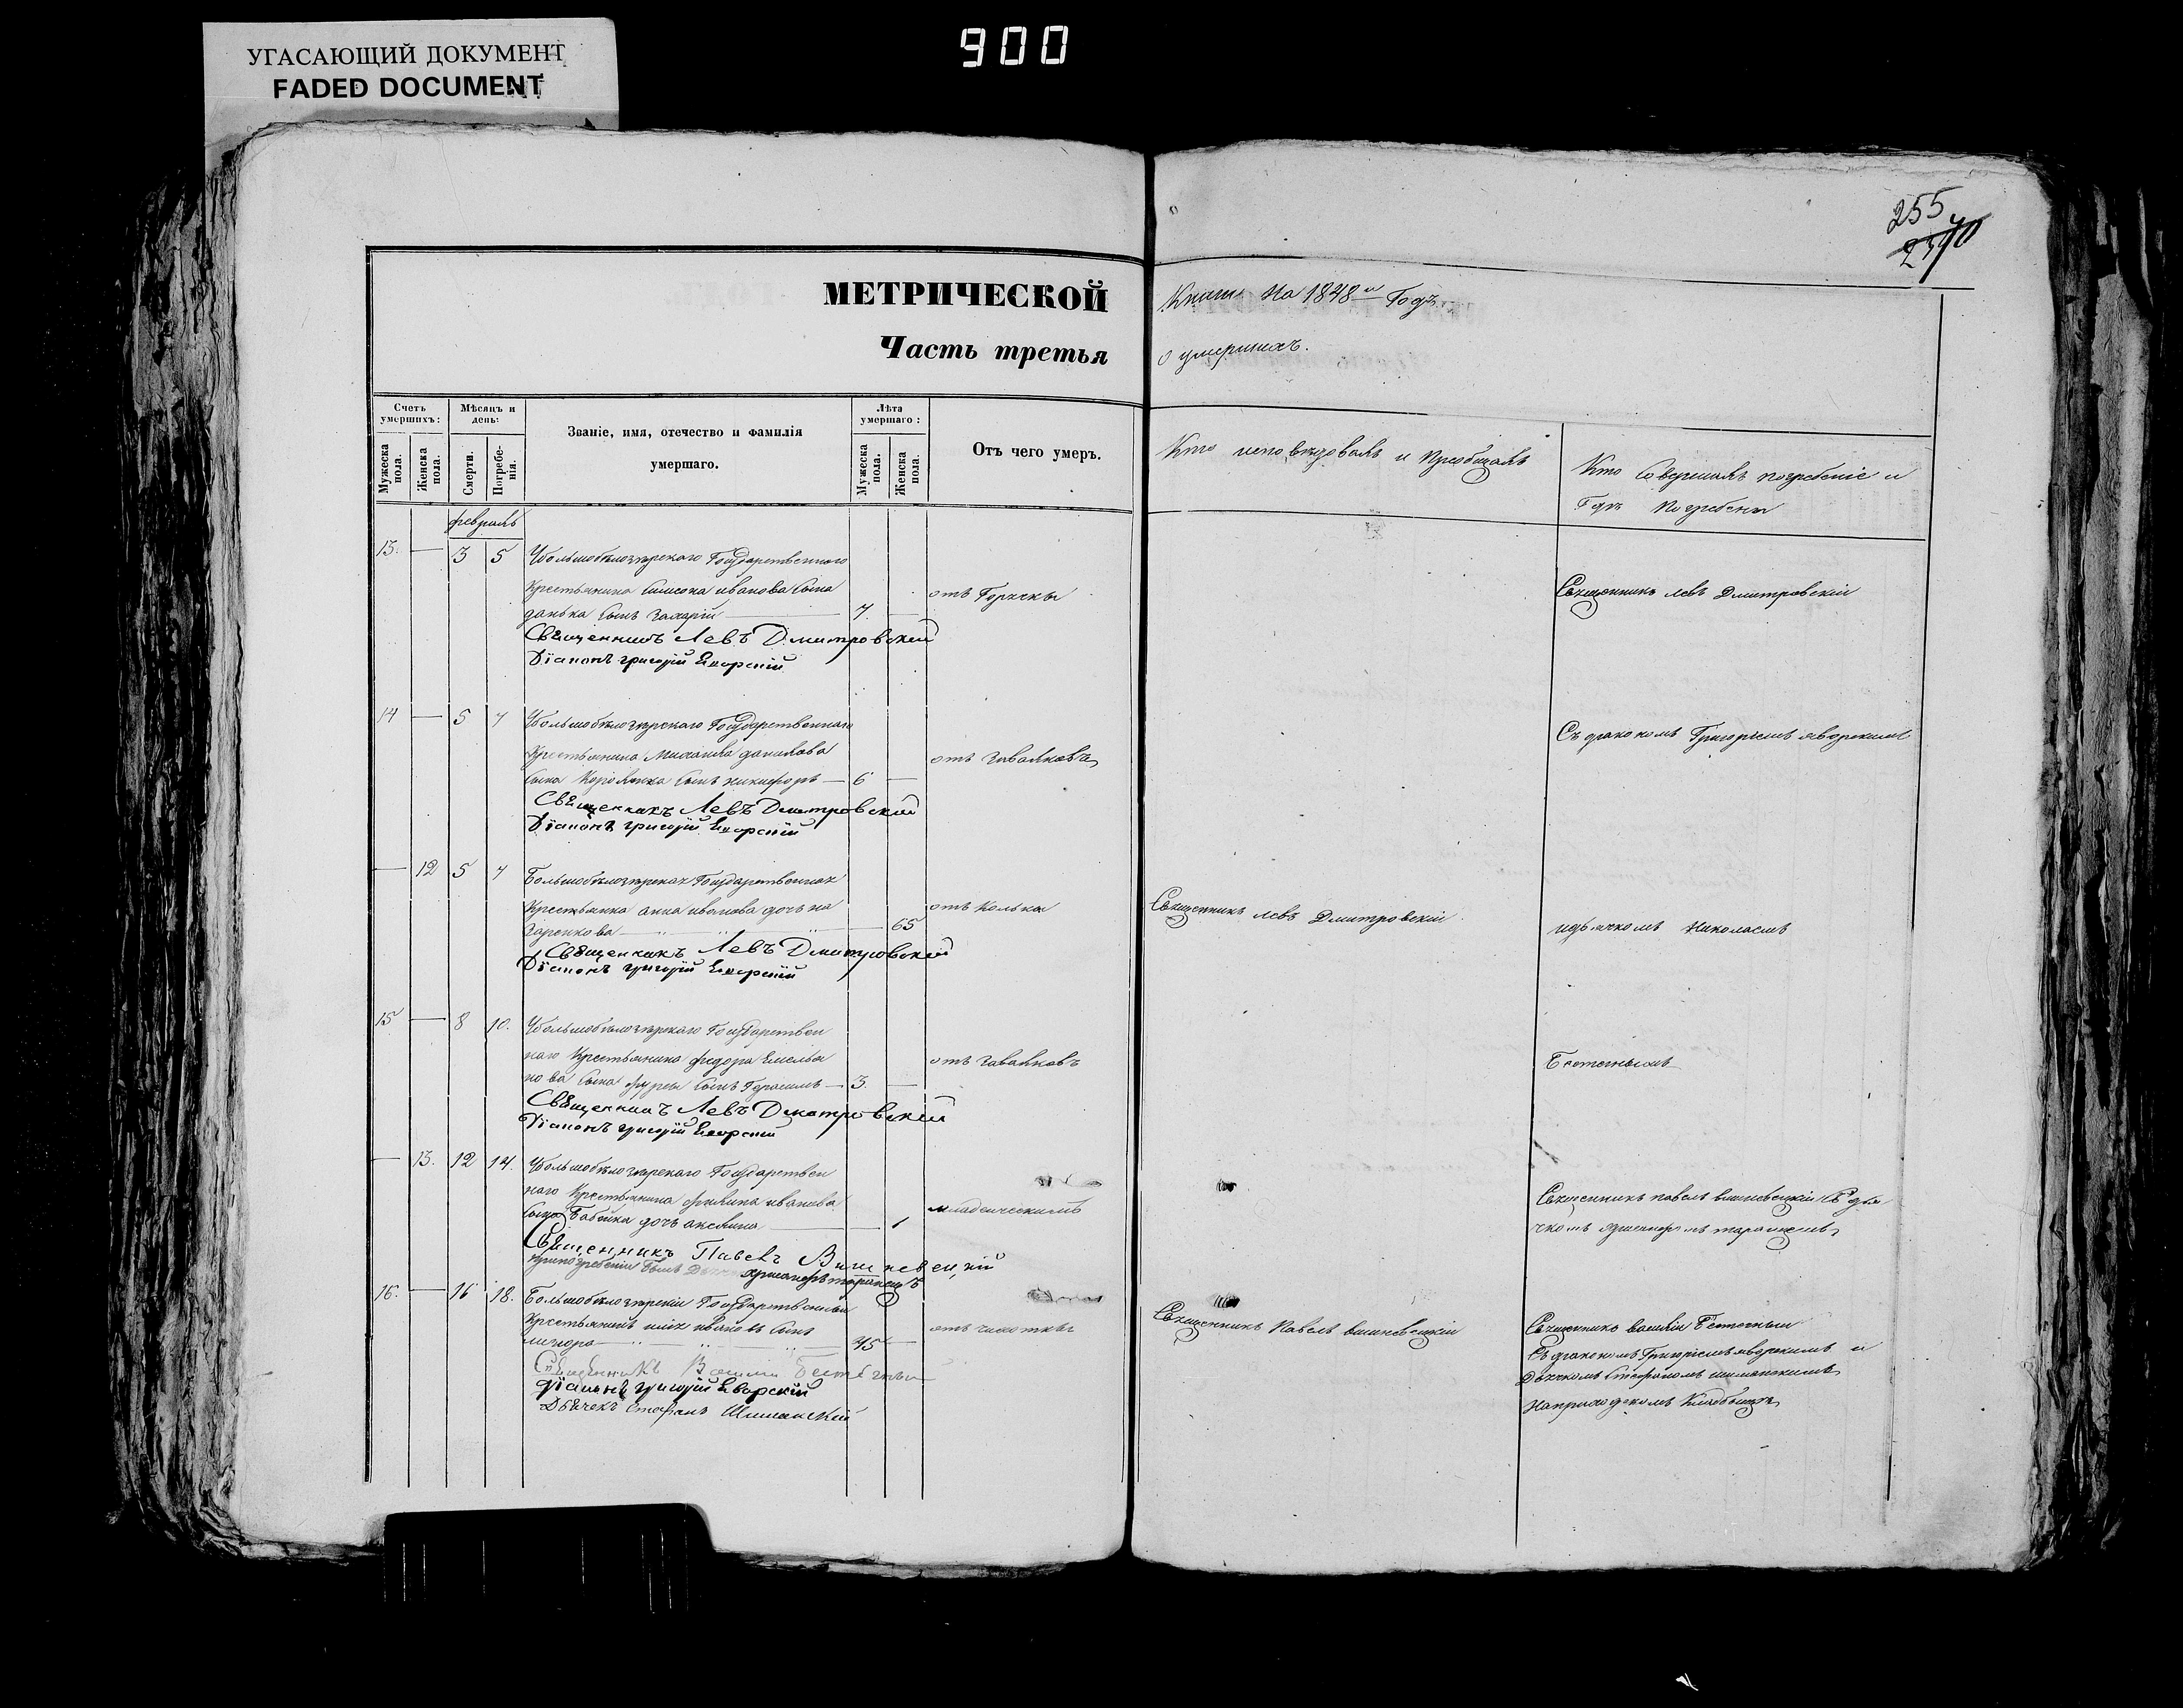 УГАСАЮЩИЙ ДОКУМЕНТ
FADED DOCUMENT
900
255
МЕТРИЧЕСКОЙ
Часть третья
Книги на 1848й Годъ
о умершихъ.
Счетъ умершихъ:
Мужеска пола.
Женска пола.
Мѣсяцъ и день:
Смерти.
Погребенія.
Званіе, имя, отечество и фамилія
умершаго.
Лѣта умершаго:
Мужеска пола.
Женска пола.
Отъ чего умеръ.
Кто исповѣдовалъ и пріобщалъ
Кто Совершалъ погребеніе и
Гдѣ Погребены
февраль
13. — 3 5 Убольшобѣлозѣрскаго Государственного
Крестьянина Симеона иванова Сына
данька Сынъ Захарій — 7.
отъ Горячки
Священникъ Левъ Дмитровскій
Діаконъ григорій Яворскій
Священникъ Левъ Дмитровскій
14 — 5 7 Убольшобѣлозѣрскаго Государственнаго
Крестьянина Михаила данилова
Сына Сынъ никифоръ — 6 —
Священникъ Левъ Дмитровскій
Діаконъ григорій Яворскій
Съ діакономъ Григоріемъ яворскимъ
— 12 5 7 Большобѣлозѣрская Государственная
Крестьянка анна иванова дочь
Заренкова — 65
отъ Колька
Священникъ Левъ Дмитровскій
Діаконъ григорій Яворскій
Священникъ Левъ Дмитровскій
идьячкомъ Николаемъ
15 — 8 10. Убольшобѣлозѣрскаго Государствен
наго Крестьянина федора Емелья
нова Сына фурсы Сынъ Герасимъ — 3. —
Священникъ Левъ Дмитровскій
Діаконъ григорій Яворскій
— 13. 12 14. Убольшобѣлозѣрскаго Государствен
наго Крестьянина иванова
Сына Бабейка дочь акилина — 1
младенческимъ
Священникъ Павелъ Вишневецкій
припогребеніи былъ
Священникъ павелъ вишневецкій Съ дья
чкомъ
16. — 16 18. Большобѣлозѣрскій Государственный
Крестьянинъ илія ивановъ Сынъ
— 45 —
отъ чихотки
Священникъ Василій
діаконъ григорій Яворскій
Дьячекъ Стефанъ Шиманскій
Священникъ Павелъ вишневецкій
Священникъ василій
Съ діакономъ Григоріемъ яворскимъ и
Дьячкомъ Стефаномъ шиманскимъ
Наприходскомъ Кладбищѣ